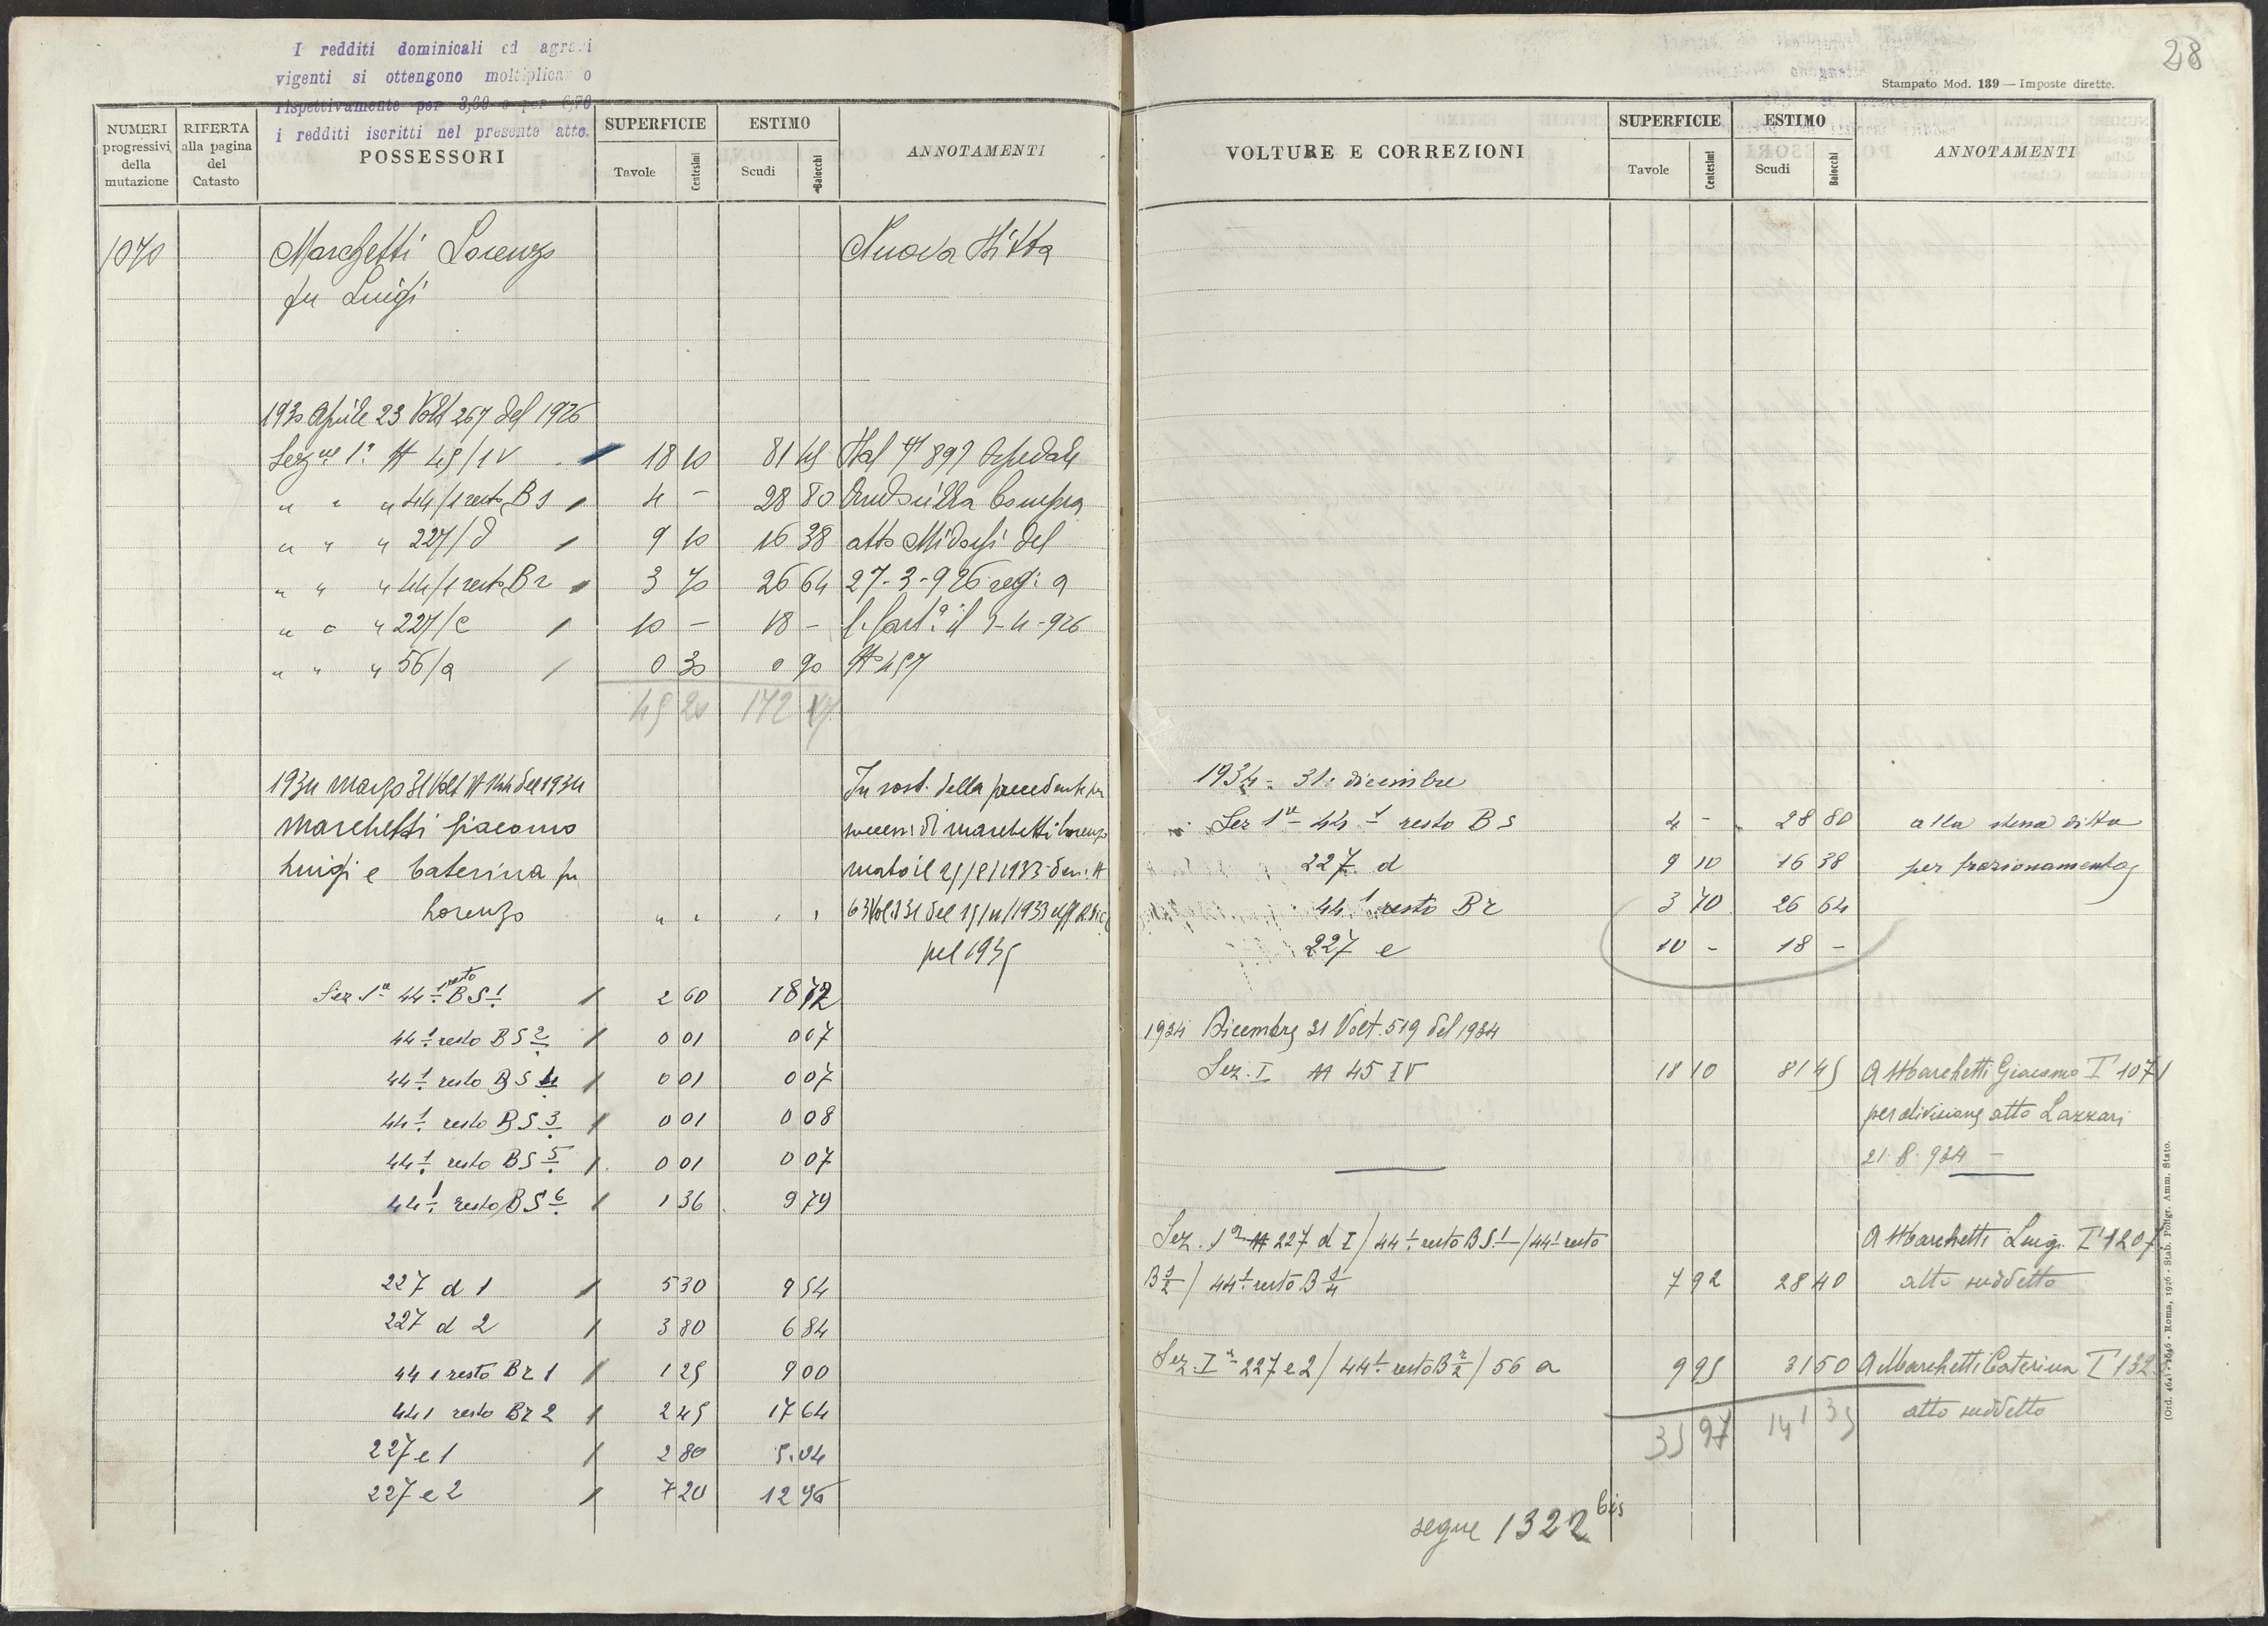 I redditi dominicali ed agrari
vigenti si ottengono moltiplicando
rispettivamente per 3,60 e per 6,70
i redditi iscritti nel presente atto.
NUMERI progressivi della mutazione
RIFERTA alla pagina del Catasto
POSSESSORI
SUPERFICIE
Tavole Centesimi
ESTIMO
Scudi Baiocchi
ANNOTAMENTI
1070 Marchetti Lorenzo Nuova Ditta
fu Luigi
1930 Aprile 23 Volt 267 del 1926
Sezne 1a N 45/IV 18 10 81 45 Dal N 897 Ospedale
" " " 44/1 resto B S 4 - 28 80 Compra
" " " 227/d 9 10 16 38 atto Midossi del
" " " 44/1 resto B r 3 70 26 64 27-3-926 reg: a
" " " 227/e 10 - 18 - il 9-4-926
" " " 56/a 0 30 0 90 N 457
45 20 172 17
1934 Marzo 31 Volt N 144 del 1934 In sost. della precedente per
Marchetti Giacomo success: di Marchetti Lorenzo
Luigi e Caterina fu morto il 25/8/1933 den: N
Lorenzo " " " " 63 Vol. 131 del 15/11/1933
pel 1935
Sez 1a 44 1 resto B S 1 2 60 18 72
44 1 resto B S 2 0 01 0 07
44 1 resto B S 4 0 01 0 07
44 1 resto B S 3 0 01 0 08
44 1 resto B S 5 0 01 0 07
44 1 resto B S 6 1 36 9 79
227 d 1 5 30 9 54
227 d 2 3 80 6 84
44 1 resto B r 1 1 25 9 00
44 1 resto B r 2 2 45 17 64
227 e 1 2 80 5.04
227 e 2 7 20 12 96
28
Stampato Mod. 139 — Imposte dirette.
VOLTURE E CORREZIONI
SUPERFICIE
Tavole Centesimi
ESTIMO
Scudi Baiocchi
ANNOTAMENTI
1934 - 31: dicembre
Sez 1a - 44 1 resto B S 4 - 28 80 alla stessa ditta
227 d 9 10 16 38 per frazionamento
44 1 resto B r 3 70 26 64
227 e 10 - 18 -
1934 Dicembre 31 Volt. 519 del 1934
Sez. I N 45 IV 18 10 81 45 A Marchetti Giacomo I 1071
per divisione atto Lazzari
21.8.934 -
Sez. 1a N 227 d I / 44 1 resto B S 1 / 44 1 resto A Marchetti Luigi I 1207
B S 2 / 44 1 resto B S 4 7 92 28 40 atto suddetto
Sez. I a 227 e 2 / 44 1 resto B r 2 / 56 a 9 95 31 50 A Marchetti Caterina I 132
atto suddetto
35 97 141 35
segue 1322 bis
- Roma, 1926 - Stab. Poligr. Amm. Stato.